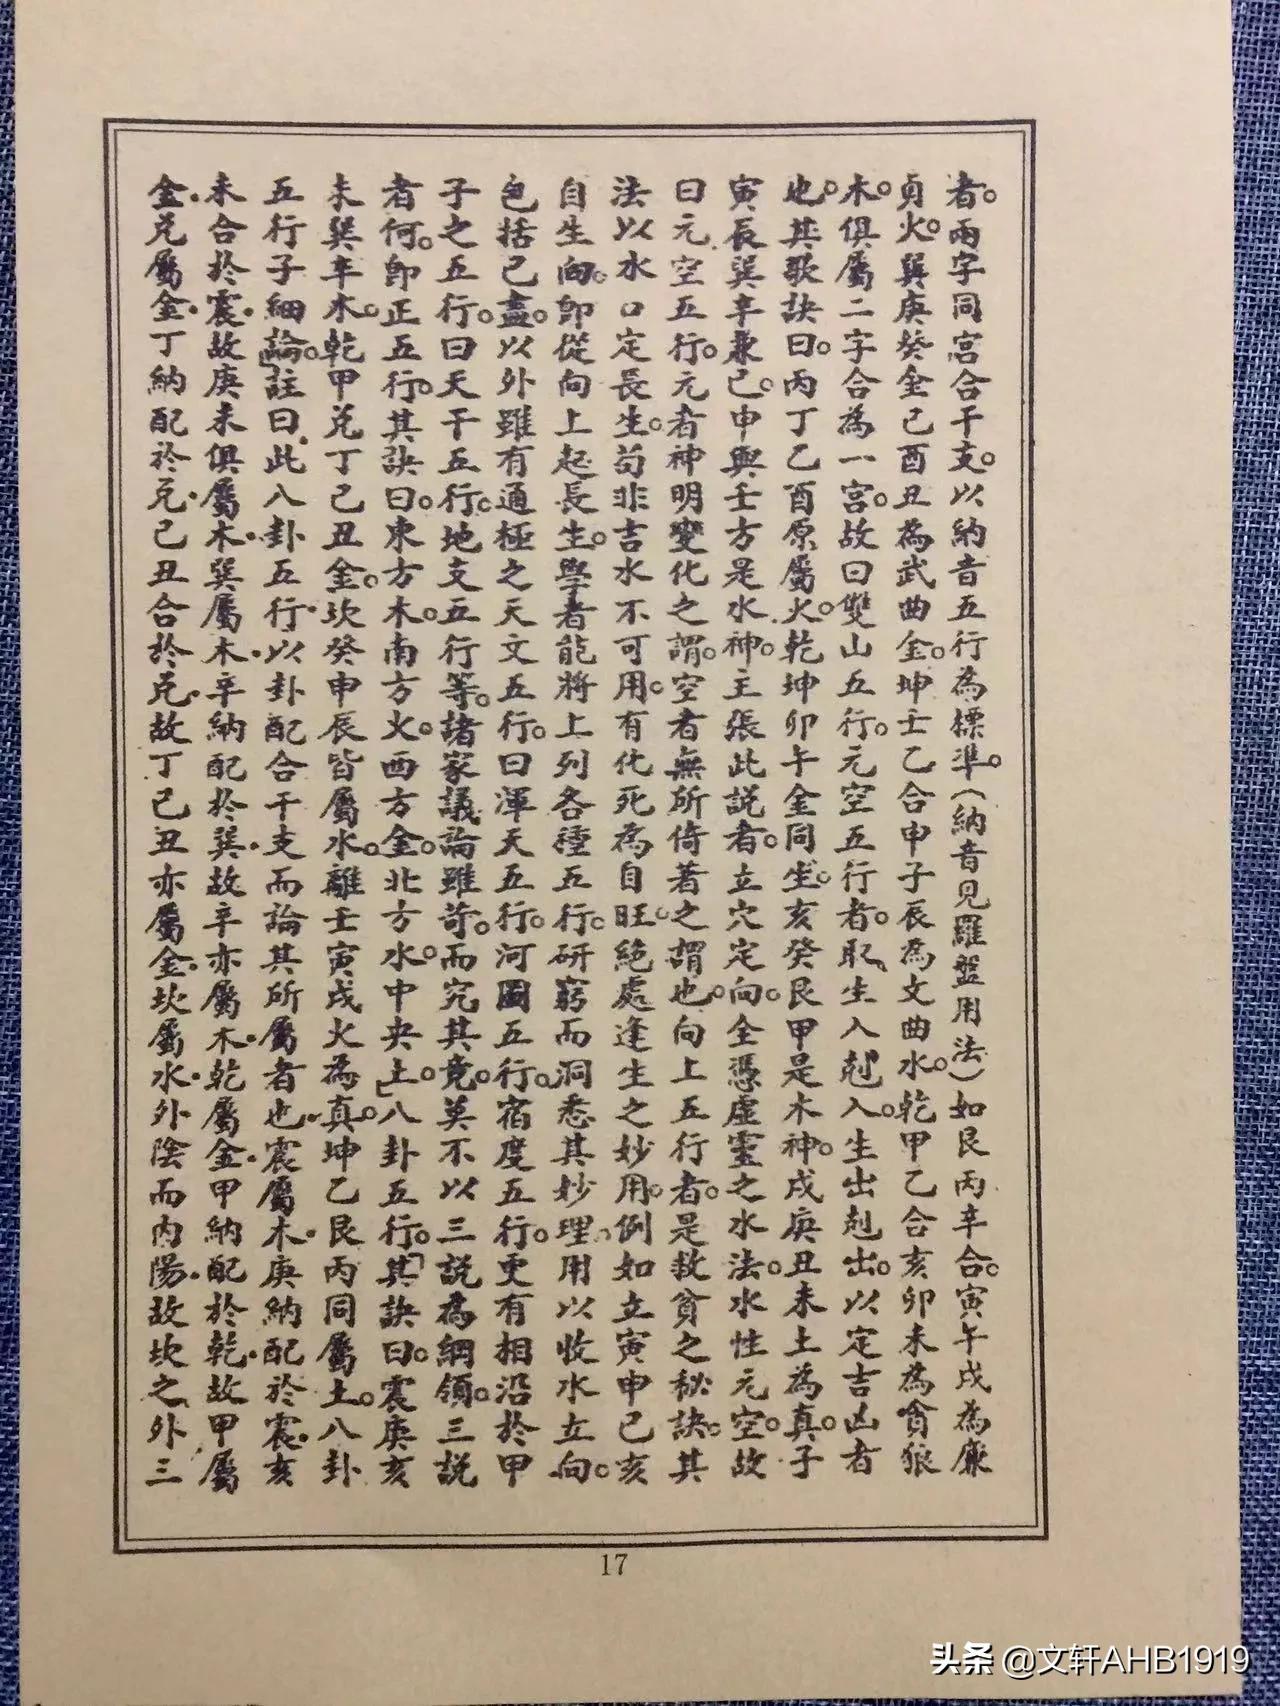 者。兩字同宮合干支。以納音五行為標準。(納音見羅盤用法)如艮丙辛合。寅午戌為廉
貞火。巽庚癸金巳酉丑為武曲金。坤壬乙合申子辰為文曲水。乾甲乙合亥卯未為貪狼
木。俱屬二字合為一宮。故曰雙山五行。元空五行者。取生入剋入。生出剋出。以定吉凶者
也。其歌訣曰。丙丁乙酉原屬火。乾坤卯午金同生。亥癸艮甲是木神。戌庚丑未土為真。子
寅辰巽辛兼巳。申與壬方是水神。主張此說者。立穴定向。全憑虛靈之水法。水性元空。故
曰元空五行。元者神明變化之謂。空者無所倚著之謂也。向上五行者。是救貧之秘訣。其
法以水口定長生。苟非吉水不可用。有化死為自旺。絕處逢生之妙用。例如立寅申巳亥
自生向。即從向上起長生。學者能將上列各種五行。研窮而洞悉其妙理。用以收水立向。
包括已盡。以外雖有通極之天文五行。曰渾天五行。河圖五行。宿度五行。更有相沿於甲
子之五行。曰天干五行。地支五行等。諸家議論雖苛。而究其竟。莫不以三說為綱領。三說
者何。即正五行。其訣曰。東方木。南方火。西方金。北方水。中央土。八卦五行。「其訣曰。震庚亥
未巽辛木。乾甲兌丁巳丑金。坎癸申辰皆屬水。離壬寅戌火為真。坤乙艮丙同屬土。八卦
五行子細論。」註曰。此八卦五行。以卦配合干支而論其所屬者也。震屬木。庚納配於震。亥
未合於震。故庚未俱屬木。巽屬木。辛納配於巽。故辛亦屬木。乾屬金。甲納配於乾。故甲屬
金。兌屬金。丁納配於兌。巳丑合於兌。故丁巳丑亦屬金。坎屬水。外陰而內陽。故坎之外三
17
头条 @文轩AHB1919